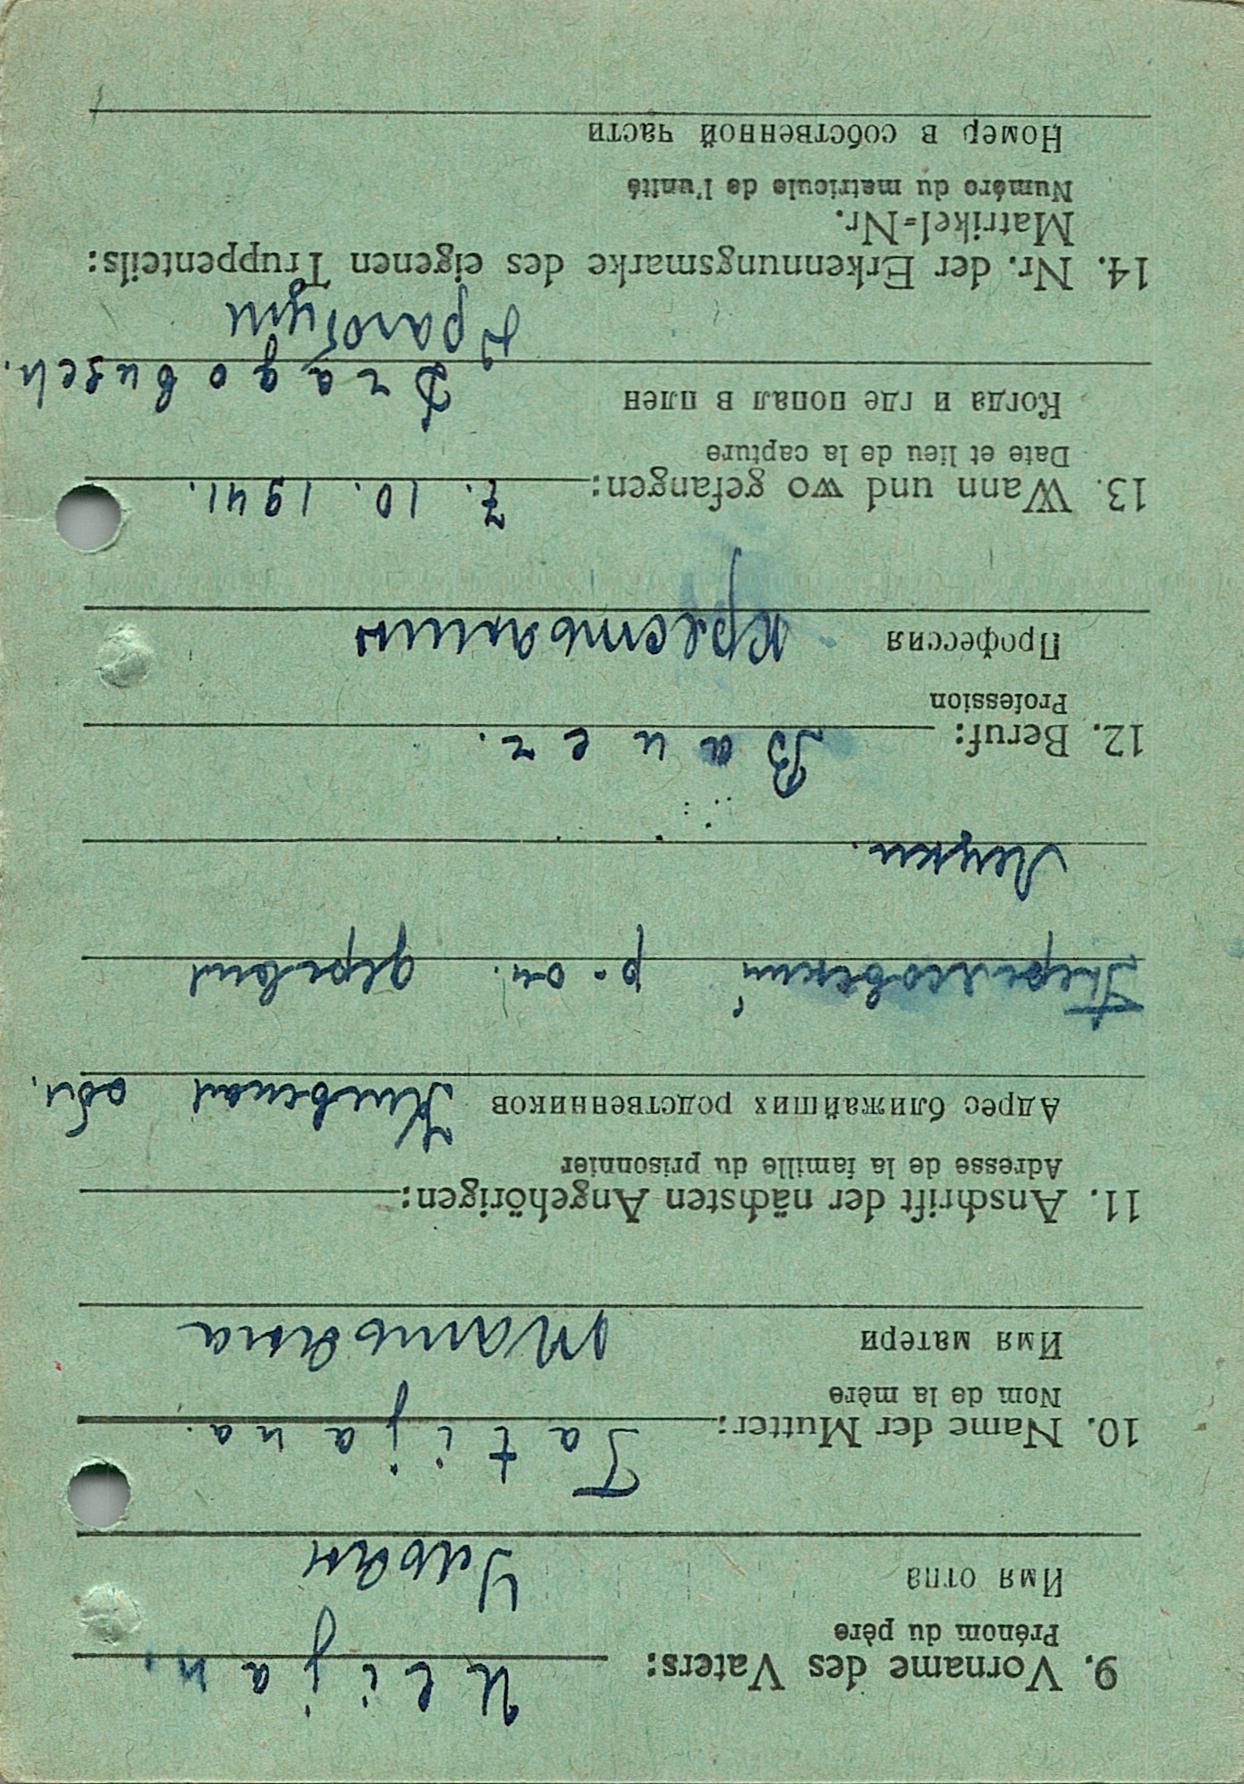 9. Vorname des Vaters: Ulijan.
Prénom du père
Имя отца Ульян
10. Name der Mutter: Tatijana.
Nom de la mère
Имя матери Татьяна
11. Anschrift der nächsten Angehörigen:
Adresse de la famille du prisonnier
Адрес ближайших родственников Киевская обл.
р-он. деревня
12. Beruf: Bauer.
Profession
Профессия крестьянин
13. Wann und wo gefangen: 7. 10. 1941.
Date et lieu de la capture
Когда и где попал в плен Dragobusch.
14. Nr. der Erkennungsmarke des eigenen Truppenteils:
Matrikel=Nr.
Numéro du matricule de l'unité
Номер в собственной части